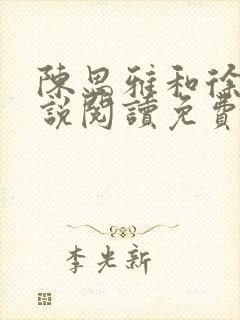 陳思雅和徐
說閱讀免費
李光新